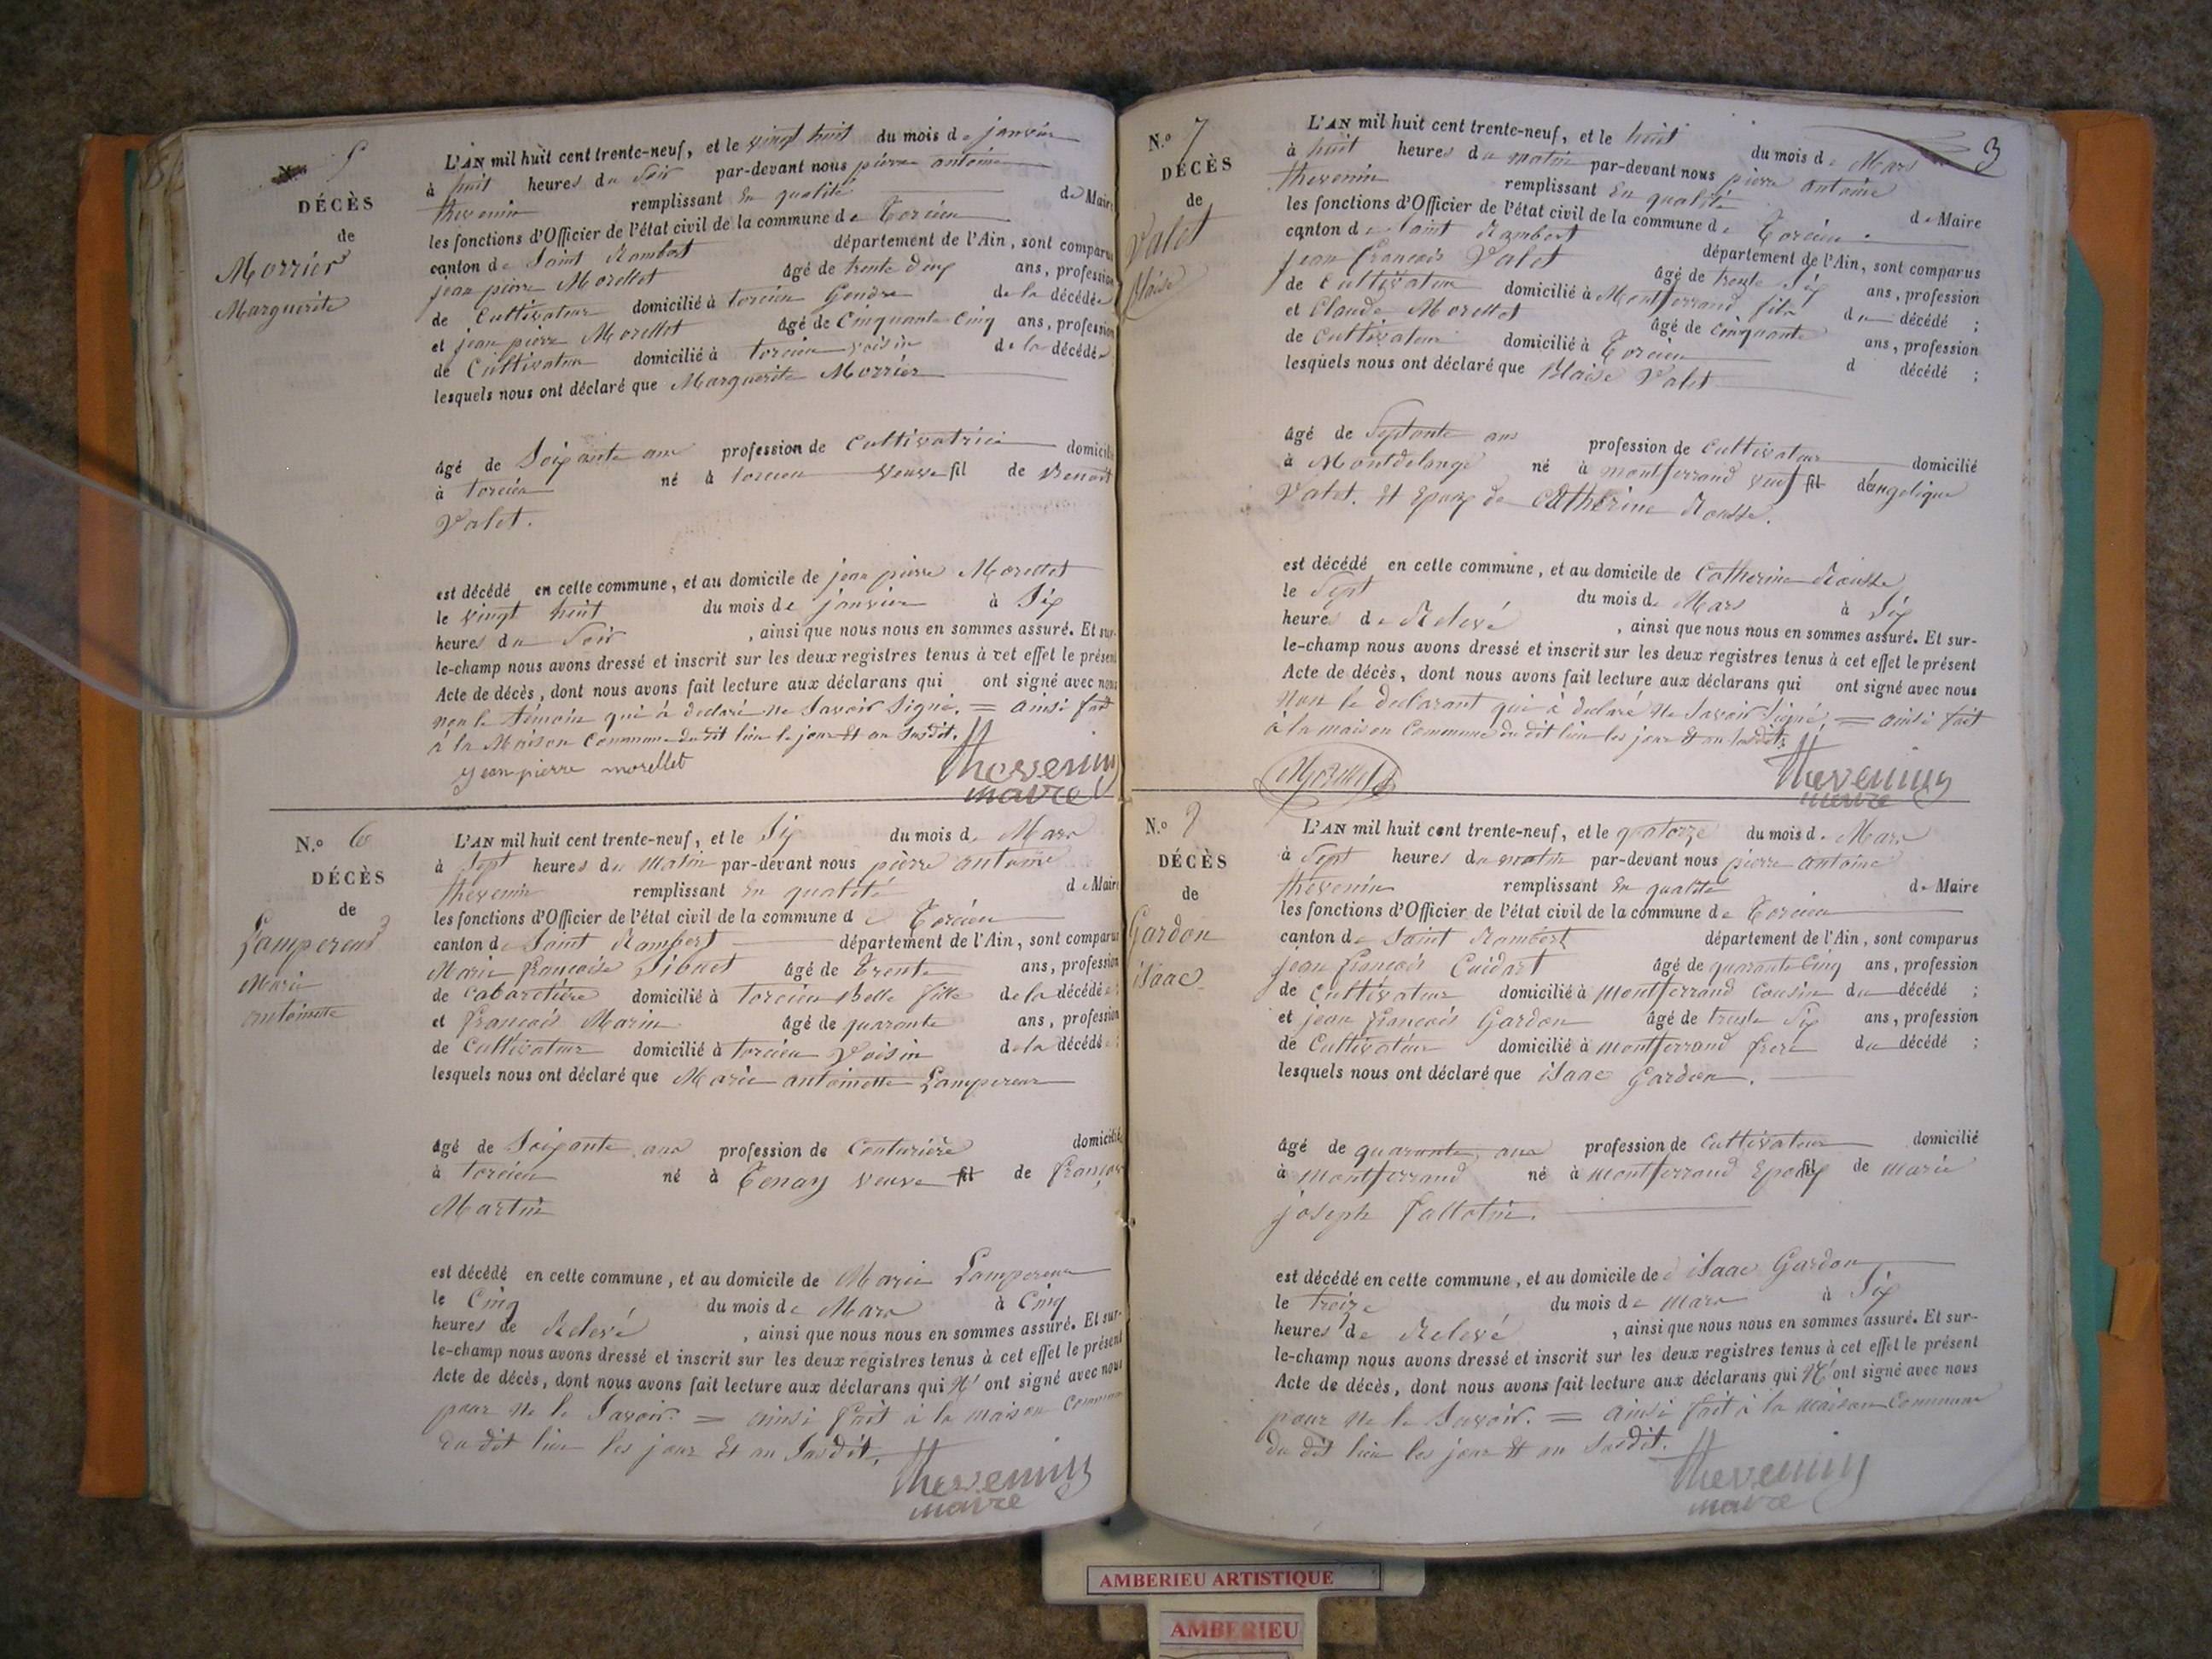 N.º 5
DÉCÈS
de
Morrier
Marguerite
L'AN mil huit cent trente-neuf, et le vingt huit du mois de janvier
à huit heures du Soir par-devant nous pierre antoine
thevenin remplissant En qualité de Maire
les fonctions d'Officier de l'état civil de la commune de Torcieu
canton de Saint Rambert département de l'Ain, sont comparus
jean pierre Morellet âgé de trente deux ans, profession
de Cultivateur domicilié à torcieu Gendre de la décédée
et jean pierre Morellet âgé de Cinquante Cinq ans, profession
de Cultivateur domicilié à torcieu voisin de la décédée
lesquels nous ont déclaré que Marguerite Morrier
âgé de Soixante ans profession de Cultivatrice domicilié
à torcieu né à torcieu veuve fil de Benoit
Valet.
est décédé en cette commune, et au domicile de jean pierre Morellet
le vingt huit du mois de janvier à Six
heures du Soir, ainsi que nous nous en sommes assuré. Et sur-
le-champ nous avons dressé et inscrit sur les deux registres tenus à cet effet le présent
Acte de décès, dont nous avons fait lecture aux déclarans qui ont signé avec nous
non le témoin qui à declaré ne Savoir Signé. = ainsi fait
à la Maison Commune du dit lieu le jour Et an Susdit.
jean pierre morellet
thevenin
maire
N.º 6
DÉCÈS
de
Lampereur
Marie
antoinette
L'AN mil huit cent trente-neuf, et le Six du mois de Mars
à Sept heures du Matin par-devant nous pierre antoine
thevenin remplissant En qualité de Maire
les fonctions d'Officier de l'état civil de la commune de Torcieu
canton de Saint Rambert département de l'Ain, sont comparus
Marie françoise Sibuet âgé de Trente ans, profession
de Cabaretière domicilié à torcieu Belle fille de la décédée
et françois Marin âgé de quarante ans, profession
de Cultivateur domicilié à torcieu Voisin de la décédée ;
lesquels nous ont déclaré que Marie antoinette Lampereur
âgé de Soixante ans profession de Couturière domicilié
à torcieu né à Tenay veuve fil de françois
Martin
est décédé en cette commune, et au domicile de Marie Lampereur
le Cinq du mois de Mars à Cinq
heures de Relevé, ainsi que nous nous en sommes assuré. Et sur-
le-champ nous avons dressé et inscrit sur les deux registres tenus à cet effet le présent
Acte de décès, dont nous avons fait lecture aux déclarans qui N' ont signé avec nous
pour Ne le Savoir. = ainsi fait à la maison Commune
du dit lieu les jour Et an Susdit.
thevenin
maire
3
N.º 7
DÉCÈS
de
Valet
Blaise
L'AN mil huit cent trente-neuf, et le huit du mois de Mars
à huit heures du matin par-devant nous pierre antoine
thevenin remplissant En qualité de Maire
les fonctions d'Officier de l'état civil de la commune de Torcieu.
canton de Saint Rambert département de l'Ain, sont comparus
jean françois Valet âgé de trente Six ans, profession
de Cultivateur domicilié à Montferrand fils du décédé ;
et Claude Morellet âgé de cinquante ans, profession
de Cultivateur domicilié à Torcieu d décédé ;
lesquels nous ont déclaré que Blaise Valet
âgé de Septante ans profession de Cultivateur domicilié
à Montdelange né à montferrand veuf fil d'angelique
Valet. Et Epoux de Catherine Rousse.
est décédé en cette commune, et au domicile de Catherine Rousse
le Sept du mois de Mars à Six
heures de Relevé, ainsi que nous nous en sommes assuré. Et sur-
le-champ nous avons dressé et inscrit sur les deux registres tenus à cet effet le présent
Acte de décès, dont nous avons fait lecture aux déclarans qui ont signé avec nous
Non le declarant qui à declaré Ne Savoir Signé. = ainsi fait
à la maison Commune du dit lieu les jour Et an Susdits
Morellet
thevenin
maire
N.º 8
DÉCÈS
de
Gardon
isaac
L'AN mil huit cent trente-neuf, et le quatorze du mois de Mars
à Sept heures du matin par-devant nous pierre antoine
thevenin remplissant En qualité de Maire
les fonctions d'Officier de l'état civil de la commune de Torcieu
canton de Saint Rambert département de l'Ain, sont comparus
jean françois Cuidart âgé de quarante Cinq ans, profession
de Cultivateur domicilié à Montferrand Cousin du décédé ;
et jean françois Gardon âgé de trente Six ans, profession
de Cultivateur domicilié à montferrand frere du décédé ;
lesquels nous ont déclaré que isaac Gardon.
âgé de quarante ans profession de Cultivateur domicilié
à Montferrand né à montferrand Epoux fil de marie
joseph
est décédé en cette commune, et au domicile de isaac Gardon
le treize du mois de mars à Six
heures de Relevé, ainsi que nous nous en sommes assuré. Et sur-
le-champ nous avons dressé et inscrit sur les deux registres tenus à cet effet le présent
Acte de décès, dont nous avons fait lecture aux déclarans qui N' ont signé avec nous
pour Ne le Savoir. = ainsi fait à la maison Commune
du dit lieu les jour Et an Susdit.
thevenin
maire
AMBERIEU ARTISTIQUE
AMBERIEU